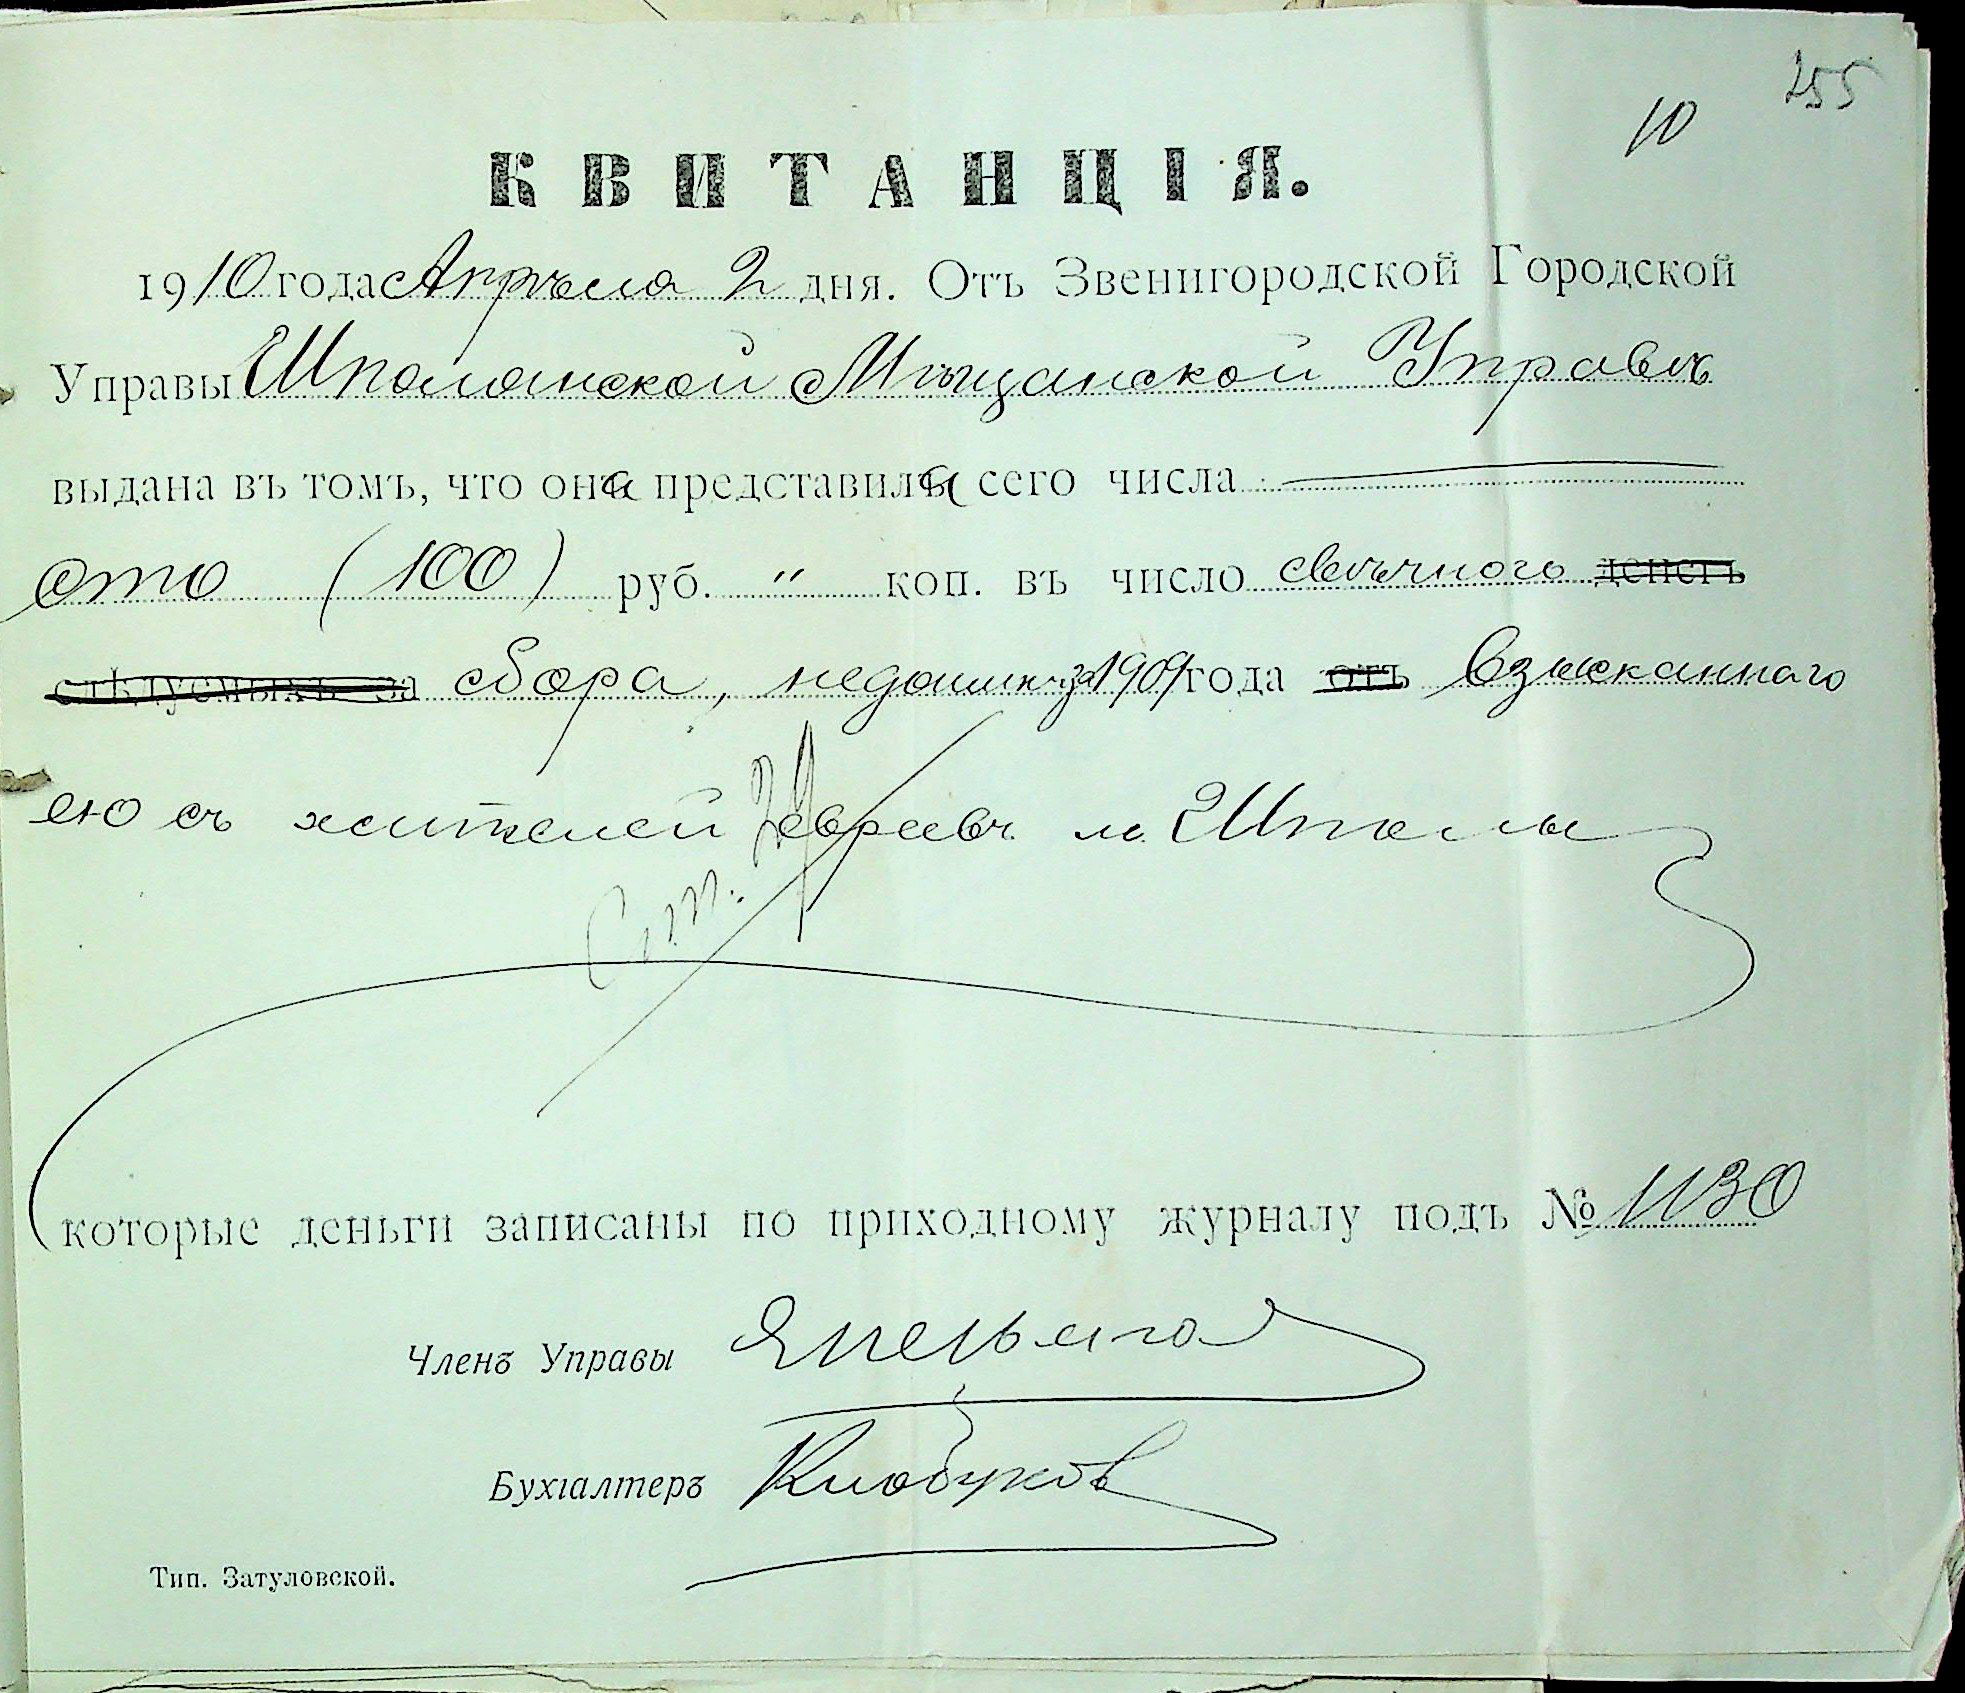 255
10
КВИТАНЦІЯ.
1910 года Апрѣля 2 дня. Отъ Звенигородской Городской
Управы Шполянской Мѣщанской Управѣ
выдана въ томъ, что она представила сего числа
сто (100) руб. " коп. въ число свѣчного денегъ
слѣдуемыхъ за сбора, недоимки за 1909 года отъ взысканнаго
ею съ жителей евреевъ м. Шполы
Ст. 29
которые деньги записаны по приходному журналу подъ № 1130
Членъ Управы
Бухгалтеръ Клобуковъ
Тип. Затуловской.